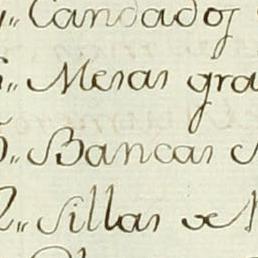 Candados
Mesas gra
Bancas
Sillas de